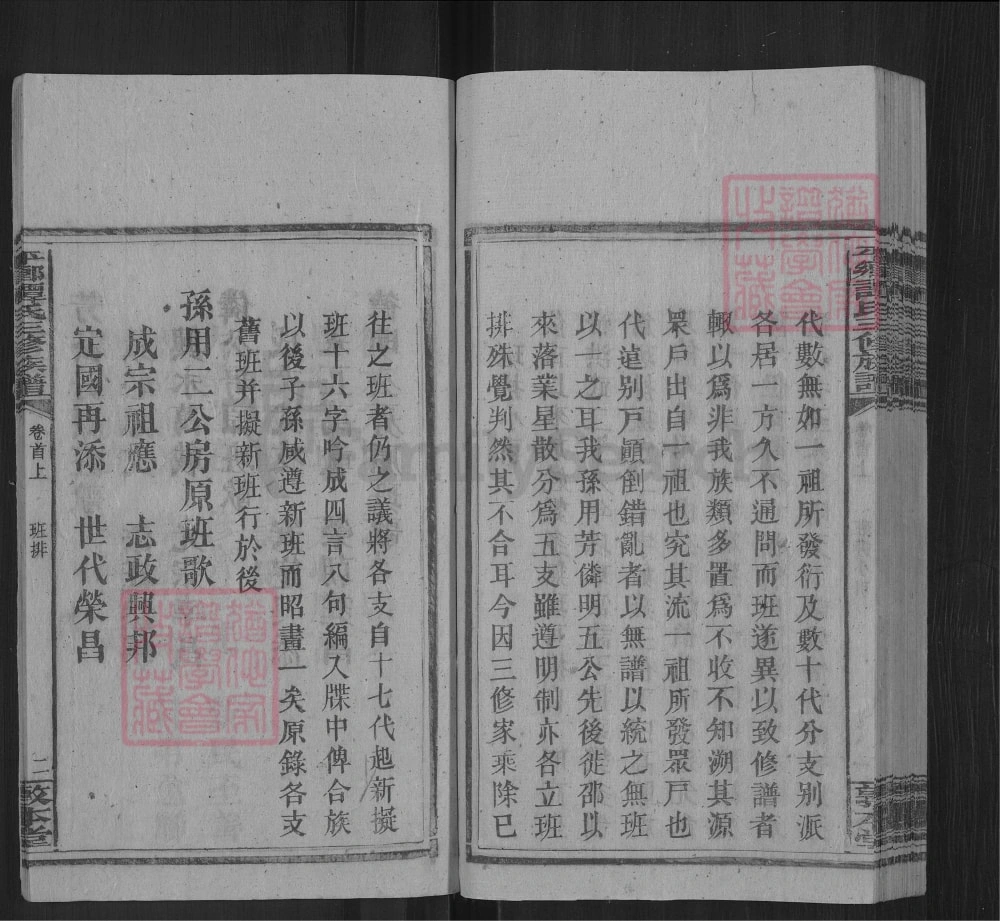 代數無如一祖所發衍及數十代分支別派
各居一方久不通問而班遂異以致修譜者
輙以爲非我族類多置爲不收不知溯其源
眾戶出自一祖也究其流一祖所發眾戶也
代遠別戶顚倒錯亂者以無譜以統之無班
以一之耳我孫用芳僯明五公先後徙邵以
來落業星散分爲五支雖遵明制亦各立班
排殊覺判然其不合耳今因三修家乘除已
往之班者仍之議將各支自十七代起新擬
班十六字吟成四言八句編入牒中俾合族
以後子孫咸遵新班而昭畫一矣原錄各支
舊班并擬新班行於後
孫用二公房原班歌
成宗祖應 志政興邦
定國再添 世代榮昌
譚氏三修族譜
卷首上 班排
二
敘本堂